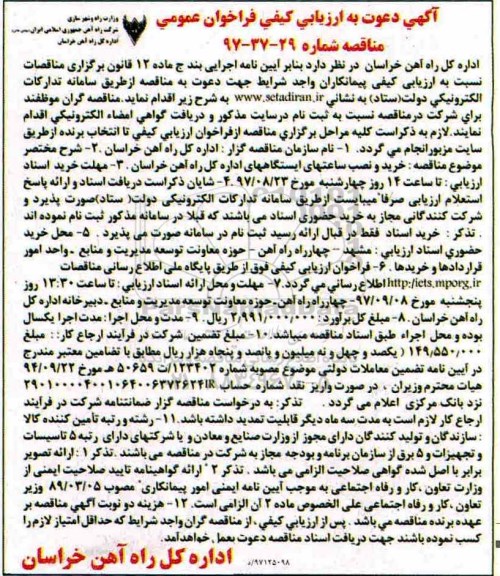 آگهي دعوت به ارزيابي كيفي فراخوان عمومي
مناقصه شماره ۲۹-۳۷-۹۷
وزارت راه و شهر سازی
شرکت راه آهن جمهوری اسلامی ایران
اداره کل راه آهن خراسان
اداره کل راه آهن خراسان در نظر دارد بنابر آیین نامه اجرایی بند ج ماده ۱۲ قانون برگزاری مناقصات
نسبت به ارزیابی کیفی پیمانکاران واجد شرایط جهت دعوت به مناقصه ازطریق سامانه تدارکات
الکترونیکی دولت(ستاد) به نشانی www.setadiran.ir به شرح زیر اقدام نماید.مناقصه گران موظفند
برای شرکت درمناقصه نسبت به ثبت نام درسایت مذکور و دریافت گواهی امضاء الکترونیکی اقدام
نمایند.لازم به ذکراست کلیه مراحل برگزاری مناقصه ازفراخوان ارزیابی کیفی تا انتخاب برنده ازطریق
سایت مزبورانجام می گردد. ۱- نام سازمان مناقصه گزار : اداره کل راه آهن خراسان .۲- شرح مختصر
موضوع مناقصه : خرید و نصب ساعتهای ایستگاههای اداره کل راه آهن خراسان .۳- مهلت خرید اسناد
ارزیابی : تا ساعت ۱۴ روز چهارشنبه مورخ ۹۷/۰۸/۲۳ .۴- شایان ذکراست دریافت اسناد و ارائه پاسخ
استعلام ارزیابی صرفا"میبایست ازطریق سامانه تدارکات الکترونیکی دولت( ستاد)صورت پذیرد و
شرکت کنندگانی مجاز به خرید حضوری اسناد می باشند که قبلا در سامانه مذکور ثبت نام نموده اند
. تذکر : خرید اسناد فقط در قبال ارائه رسید ثبت نام در سامانه صورت می پذیرد . ۵- محل خرید
حضوری اسناد ارزیابی : مشهد – چهارراه راه آهن –حوزه معاونت توسعه مدیریت و منابع - واحد امور
قراردادها و خریدها .۶- فراخوان ارزیابی کیفی فوق از طریق پایگاه ملی اطلاع رسانی مناقصات
http:iets.mporg.ir اطلاع رسانی می گردد.۷- مهلت و محل ارائه اسناد ارزیابی : تا ساعت ۱۳:۳۰ روز
پنجشنبه مورخ ۹۷/۰۹/۰۸ – چهارراه راه آهن حوزه معاونت توسعه مدیریت و منابع -دبیرخانه اداره کل
راه آهن خراسان .۸- مبلغ کل برآورد : ۲/۹۹۱/۰۰۰/۰۰۰ ریال .۹- مدت و محل اجرا : مدت اجرا یکسال
بوده و محل اجراء طبق اسناد مناقصه میباشد.۱۰- مبلغ تضمین شرکت در فرآیند ارجاع کار: : مبلغ
۱۴۹/۵۵۰/۰۰۰ ( یکصد و چهل و نه میلیون و پانصد و پنجاه هزار ریال مطابق با تضامین معتبر مندرج
در آیین نامه تضمین معاملات دولتی موضوع مصوبه شماره ۱۲۳۴۰۲/ت ۵۰۶۵۹ ه مورخ ۹۴/۰۹/۲۲
هیات محترم وزیران . در صورت واریز نقد شماره حساب
نزد بانک مرکزی اعلام می گردد . تذکر: به درخواست مناقصه گزار ضمانتنامه شرکت در فرآیند
ارجاع کار لازم است به مدت سه ماه دیگر قابلیت تمدید داشته باشد.۱۱- رشته و رتبه تأمین کننده کالا
: سازندگان و تولید کنندگان دارای مجوز از وزارت صنایع و معادن و یا شرکتهای دارای رتبه ۵ تاسیسات
و تجهیزات و ۵ برق از سازمان برنامه و بودجه مجاز به شرکت در مناقصه می باشند .تذکر ۱ : ارائه تصویر
برابر با اصل شده گواهی صلاحیت الزامی می باشد . تذکر ۲ " ارائه گواهینامه تایید صلاحیت ایمنی از
وزارت تعاون ،کار و رفاه اجتماعی به موجب آیین نامه ایمنی امور پیمانکاری" مصوب ۸۹/۰۳/۰۵ وزیر
تعاون ،کار و رفاه اجتماعی علی الخصوص ماده ۲ آن الزامی است. ۱۲- هزینه دو نوبت آگهی مناقصه بر
عهده برنده مناقصه می باشد . پس از ارزیابی کیفی ، از مناقصه گران واجد شرایط که حداقل امتیاز لازم را
کسب نموده باشند جهت دریافت اسناد مناقصه دعوت بعمل خواهدآمد.
۹۷۱۲۵۰۹۸/د
اداره کل راه آهن خراسان